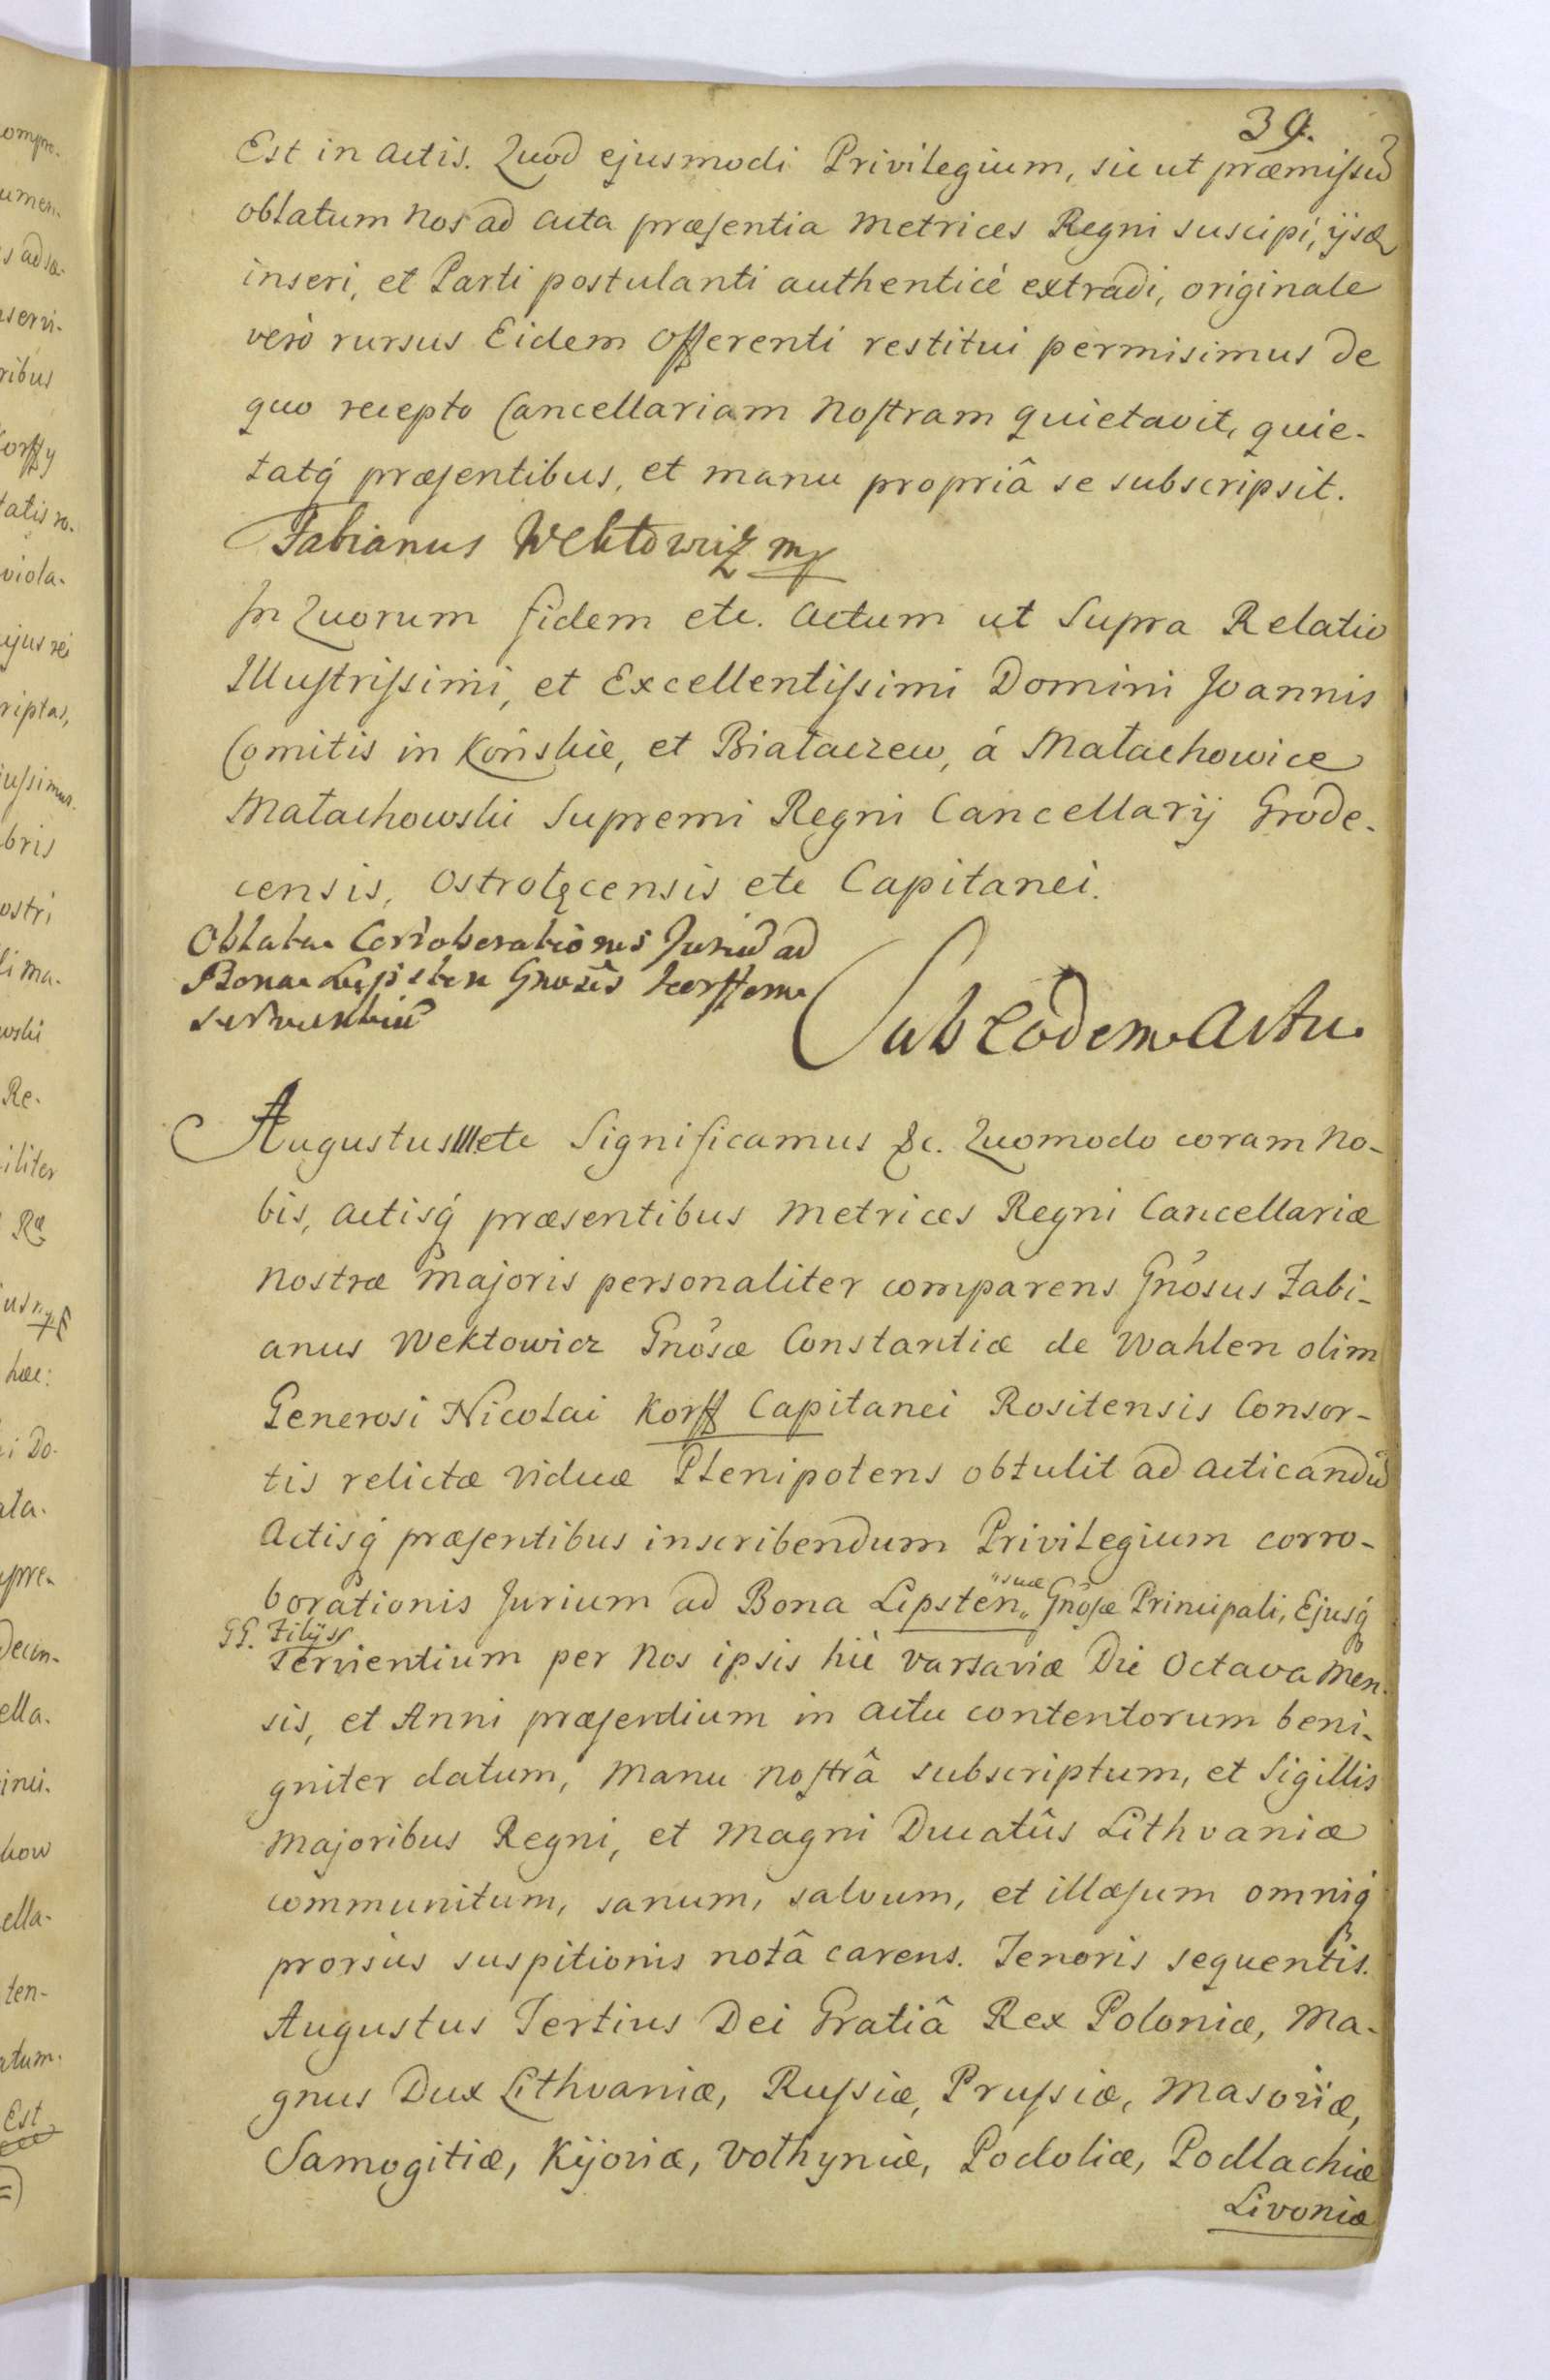 39.
Est in actis. Quod ejusmodi Privilegium, sic ut præmissũ
oblatum nos ad acta præsentia Metrices Regni suscipi, ijsq̃
inseri, et Parti postulanti authenticè extradi, originale
verò rursus Eidem Offerenti restitui permisimus de
quo recepto Cancellariam Nostram quietavit, quie-
tatq́ præsentibus, et manu propriâ se subscripsit.
Fabianus Wektowicz mp
In Quorum fidem etc. Actum ut Supra Relatio
Illustrissimi, et Excellentissimi Domini Joannis
Comitis in Końskie, et Białaczew, á Małachowice
Małachowski Supremi Regni Cancellarij Grode-
censis, Ostrołęcensis etc Capitanei.
Oblatae Corroborationis Juriũ ad
Bona Lepsten Gnosis Korffom
servientiũ
Sub eodem Actu
Augustus III etc Significamus &c. Quomodo coram No-
bis, Actisq́ præsentibus Metrices Regni Cancellariæ
Nostræ Majoris personaliter comparens Gnõsus Fabi-
anus Wektowicz Gnõsæ Constantiæ de Wahlen olim
Generosi Nicolai Korff Capitanei Rositensis Consor-
tis relictæ viduæ Plenipotens obtulit ad acticandũ
Actisq́ præsentibus inscribendum Privilegium corro-
borationis Jurium ad Bona Lepsten „ "suæ Gnõsæ Principali, Ejusq́
GG. Filijs
servientium per Nos ipsis hic Varsaviæ Die Octava Men-
sis, et Anni præsentium in actu contentorum beni-
gniter datum, Manu nostrâ subscriptum, et Sigillis
Majoribus Regni, et Magni Ducatûs Lithvaniæ
communitum, sanum, salvum, et illæsum omniq́
prorsus suspitionis notâ carens. Tenoris sequentis.
Augustus Tertius Dei Gratiâ Rex Poloniæ, Ma-
gnus Dux Lithvaniæ, Russiæ, Prussiæ, Masoviæ,
Samogitiæ, Kijoviæ, Volhyniæ, Podoliæ, Podlachiæ
Livoniæ